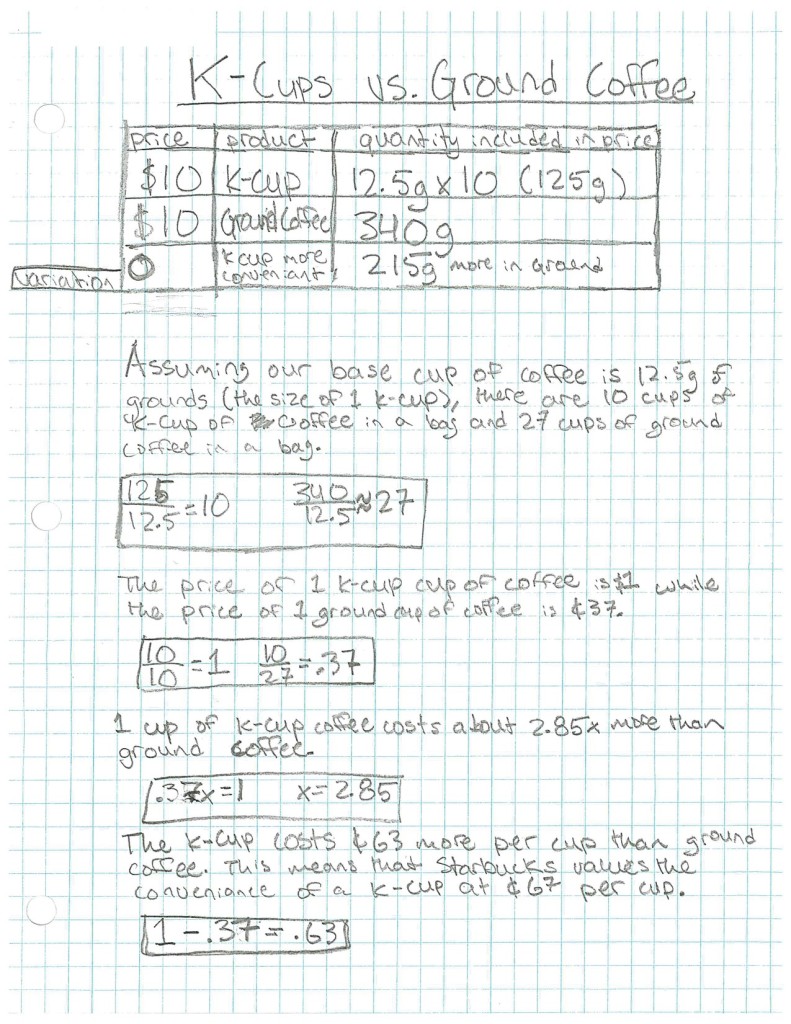 K-Cups vs. Ground Coffee
price product quantity included in price
$10 K-cup 12.5g x 10 (125g)
$10 Ground Coffee 340g
variation 0 K cup more conveniant 215g more in ground
Assuming our base cup of coffee is 12.5g of
grounds (the size of 1 k-cup), there are 10 cups of
K-cup of coffee in a bag and 27 cups of ground
coffee in a bag.
125/12.5 = 10 340/12.5 ≈ 27
The price of 1 k-cup cup of coffee is $1 while
the price of 1 ground cup of coffee is ¢37.
10/10 = 1 10/27 = .37
1 cup of k-cup coffee costs about 2.85x more than
ground coffee.
.37x = 1 x = 2.85
The K-Cup costs ¢63 more per cup than ground
coffee. This means that Starbucks values the
conveniance of a k-cup at ¢67 per cup.
1 - .37 = .63